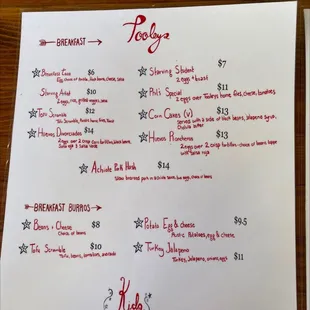 Pooleys
BREAKFAST
Breakfast Taco $6
Egg, choice of tortilla, black beans, cheese, salsa
Starving Artist $10
2 eggs, rice, grilled veggies, salsa
Tofu Scramble $12
Tofu Scramble, Avocado, beans, Toast
Huevos Divorciados $14
2 eggs over 2 crisp corn tortillas, black beans,
Starving Student $7
2 eggs + toast
Phil's Special $11
2 eggs over Pooleys home fries, cheese, tomatoes
Corn Cakes (v) $11
served with a side of black beans, Jalapeno Syrup,
Chipotle butter
Huevos Rancheros $13
2 eggs over 2 crisp tortillas - choice of beans topped
with salsa roja
Achiote Pork Hash $14
Slow braised pork in achiote, eggs, choice of beans
BREAKFAST BURROS
Beans + Cheese $8
Choice of beans
Tofu Scramble $10
Tofu, beans, tomatoes, avocado
Potato Egg & cheese $9.5
Potatoes, egg & cheese
Turkey Jalapeno $11
Turkey, Jalapeno, onions, eggs
Kids